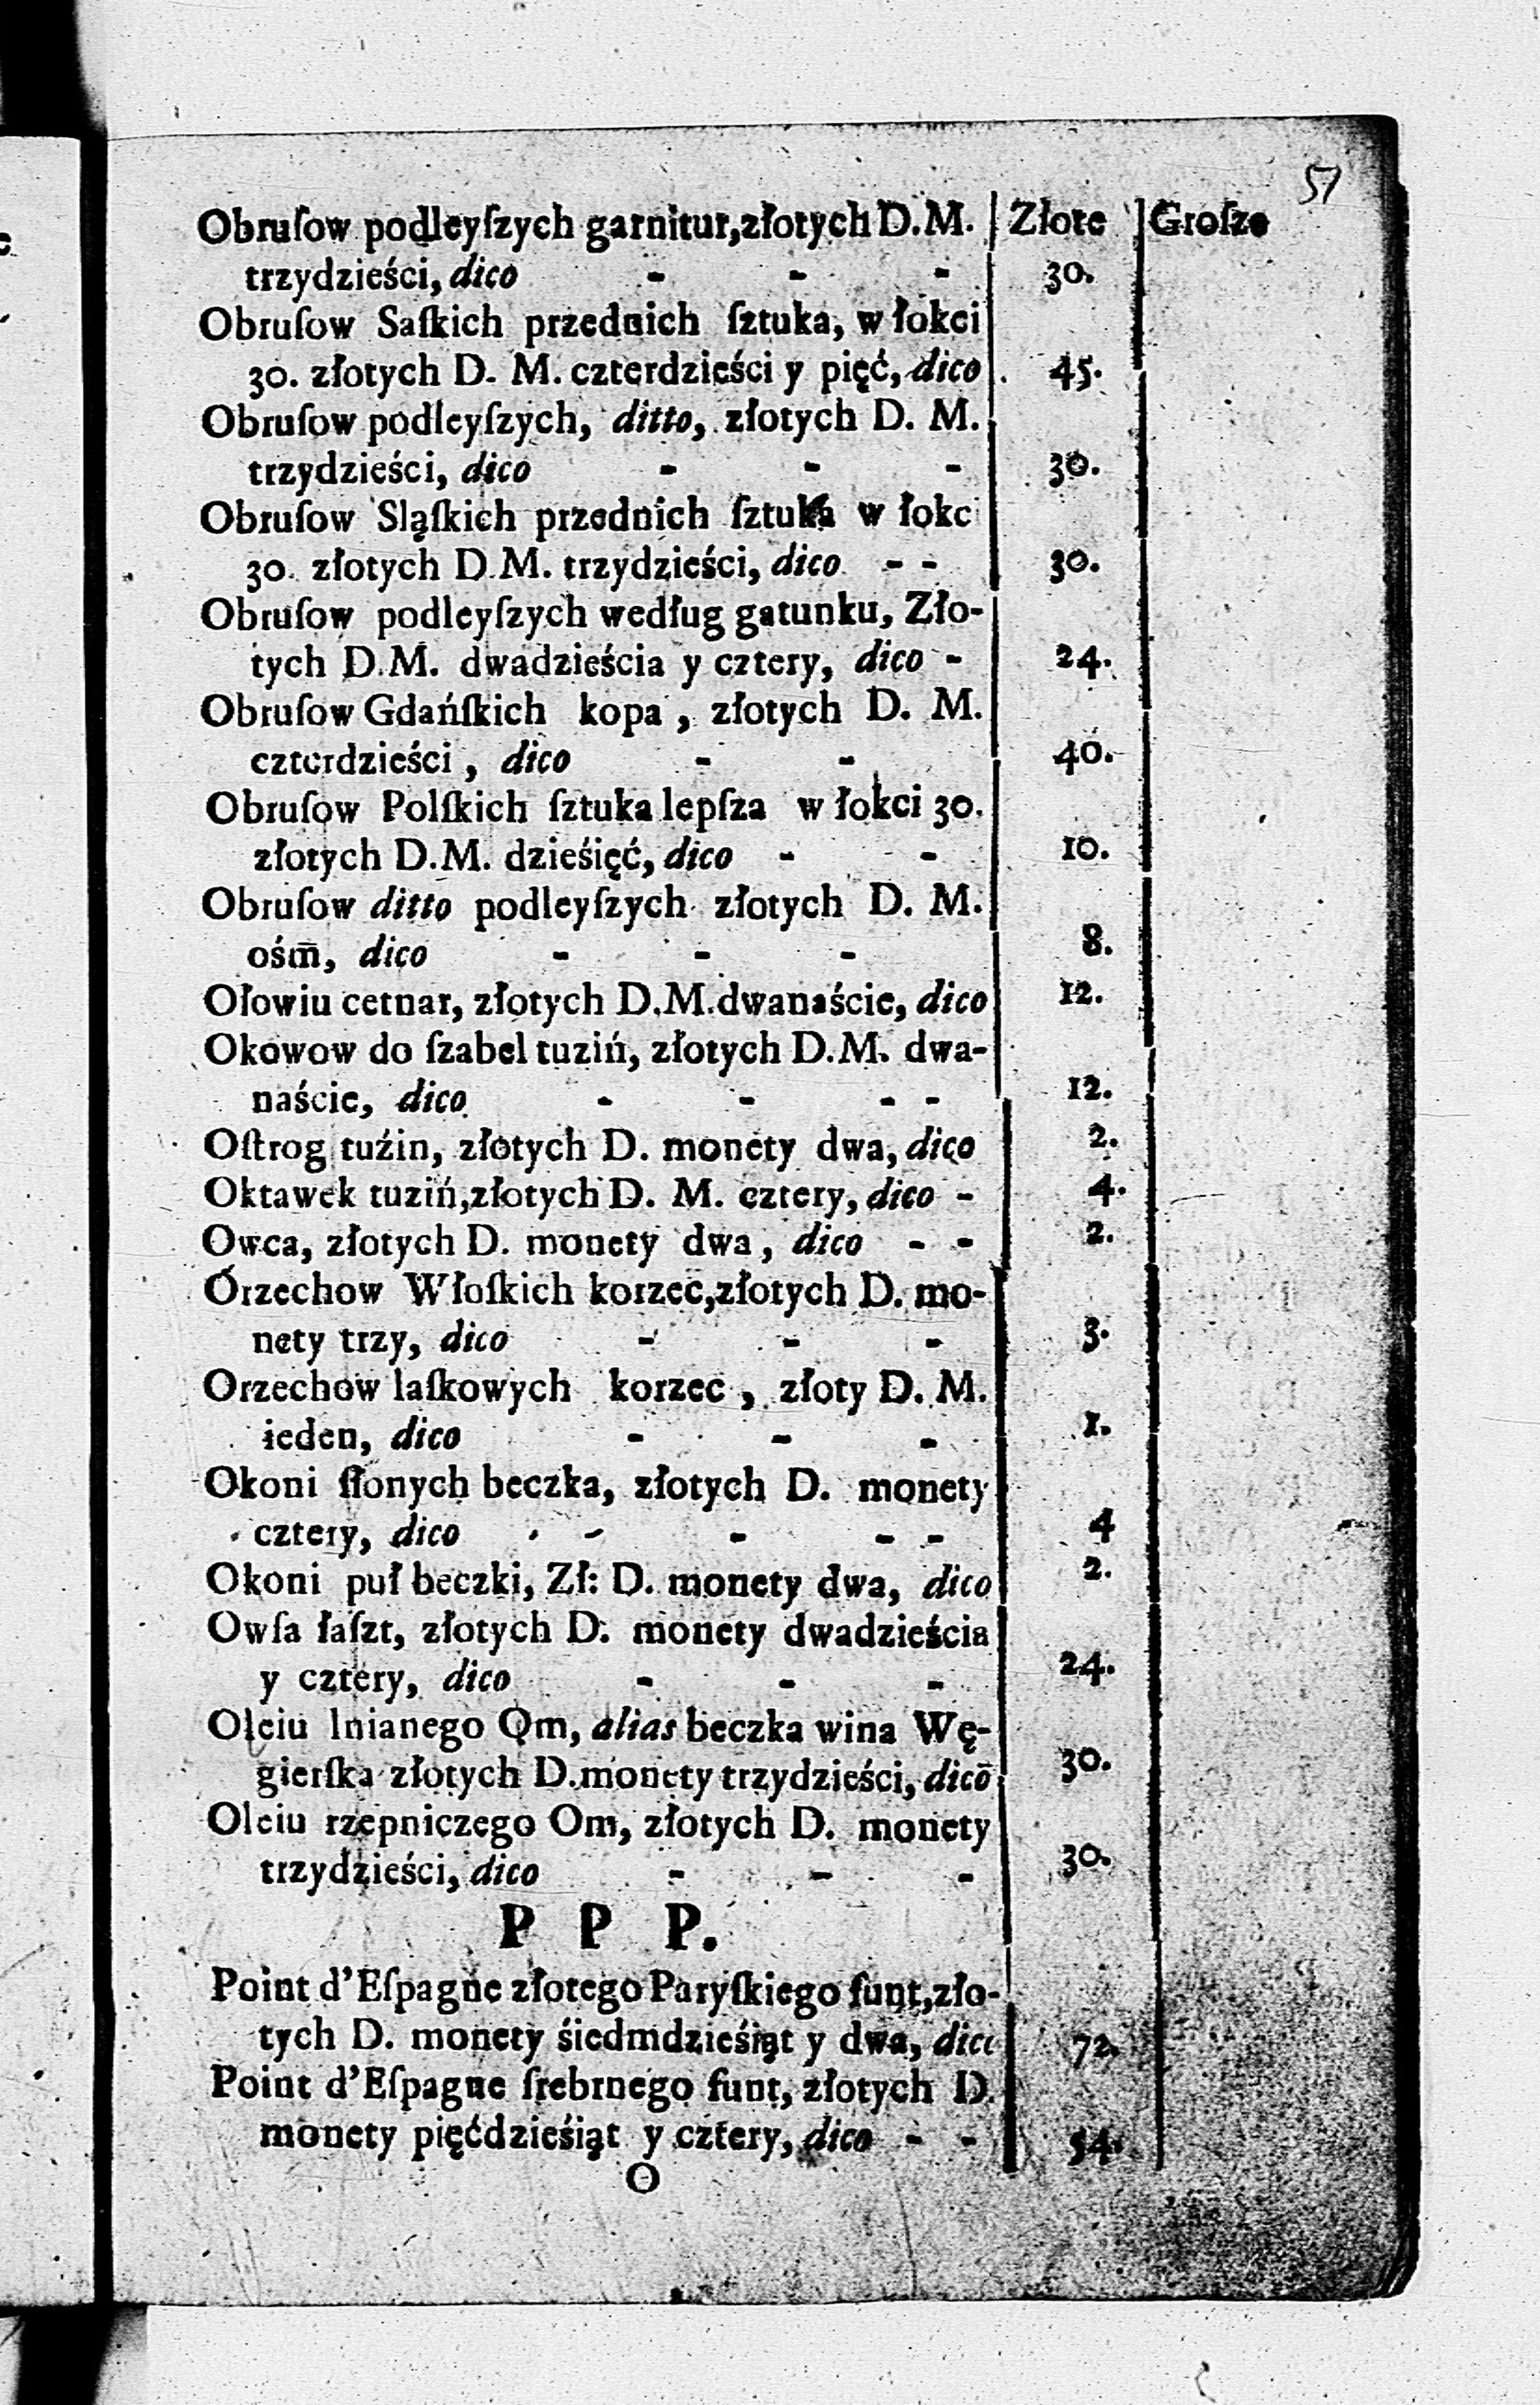 57
Obruſow podleyſzych garnitur,złotych D.M. Złote Groſze
trzydzieści, dico - - - 30.
Obruſow Saſkich przednich ſztuka, w łokci
30. złotych D. M. czterdzieści y pięć, dico 45.
Obruſow podleyſzych, ditto, złotych D. M.
trzydzieści, dico - - - 30.
Obruſow Sląſkich przednich ſztuka w łokc
30. złotych D.M. trzydzieści, dico - - 30.
Obruſow podleyſzych według gatunku, Zło-
tych D.M. dwadzieścia y cztery, dico - 24.
Obruſow Gdańſkich kopa, złotych D. M.
czterdzieści, dico - - 40.
Obruſow Polſkich ſztuka lepſza w łokci 30.
złotych D.M. dzieśięć, dico - - 10.
Obruſow ditto podleyſzych złotych D. M.
ośm̄, dico - - - 8.
Ołowiu cetnar, złotych D.M.dwanaście, dico 12.
Okowow do ſzabel tuziń, złotych D.M. dwa-
naście, dico - - - - 12.
Oſtrog tuźin, złotych D. monety dwa, dico 2.
Oktawek tuziń,złotych D. M. cztery, dico - 4.
Owca, złotych D. monety dwa, dico - - 2.
Orzechow Włoſkich korzec,złotych D. mo-
nety trzy, dico - - - 3.
Orzechow laſkowych korzec, złoty D. M.
ieden, dico - - - 1.
Okoni ſłonych beczka, złotych D. monety
cztery, dico - - - - 4
Okoni puł beczki, Zł: D. monety dwa, dico 2.
Owſa łaſzt, złotych D. monety dwadzieścia
y cztery, dico - - - 24.
Oleiu lnianego Om, alias beczka wina Wę-
gierſka złotych D.monety trzydzieści, dico 30.
Oleiu rzepniczego Om, złotych D. monety
trzydzieści, dico - - - 30.
P P P.
Point d'Eſpagne złotego Paryſkiego funt,zło-
tych D. monety śiedmdzieśiąt y dwa, dico 72.
Point d'Eſpagne ſrebrnego funt, złotych D.
monety pięćdzieśiąt y cztery, dico - - 54.
O